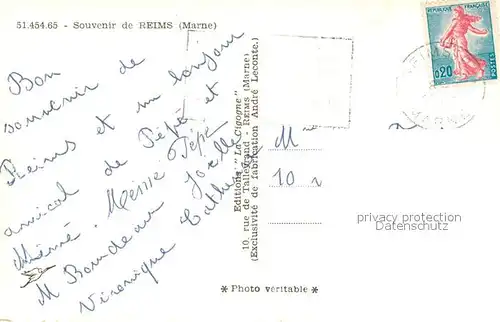 51.454.65 - Souvenir de REIMS (Marne)
Bon
souvenir de
Reims et un bonjour
amical de Pépé et
Mémé. Pépé
M Joëlle
Véronique Cathe
Editions "La Cigogne"
10, rue de Talleyrand - REIMS (Marne)
(Exclusivité de fabrication André Leconte.)
* Photo véritable *
REPUBLIQUE FRANÇAISE
0,20
POSTES
MARNE
M
10
privacy protection
Datenschutz